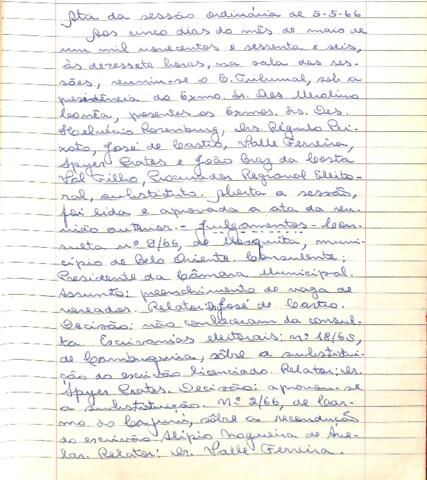 Ata da sessão ordinária de 5-5-66
Aos cinco dias do mês de maio de
um mil novecentos e sessenta e seis,
às dezessete horas, na sala das ses-
sões, reuniu-se o E. Tribunal, sob a
presidência do Exmo. Sr. Des. Merolino
Corrêa, presentes os Exmos. Srs. Des.
Helvécio Rosenburg, Drs. Régulo Pei-
xoto, José de Castro, Valle Ferreira,
Spyer Prates e João Braz da Costa
Val Filho, Procurador Regional Eleito-
ral, substituto. Aberta a sessão,
foi lida e aprovada a ata da reu-
nião anterior. - Julgamentos - Con-
sulta nº 9/66, de Mesquita, muni-
cípio de Belo Oriente. Consulente;
Presidente da Câmara Municipal.
Assunto: preenchimento de vaga de
vereador. Relator: Dr. José de Castro.
Decisão: não conheceram da consul-
ta. Escrivanias eleitorais: nº 18/65,
de Cambuquira, sôbre a substitui-
ção do escrivão licenciado. Relator: Dr.
Spyer Prates. Decisão: aprovou-se
a substituição. Nº 2/66, de Car-
mo do Cajuru, sôbre a recondução
do escrivão Alípio Nogueira de Ave-
lar. Relator: Dr. Valle Ferreira.